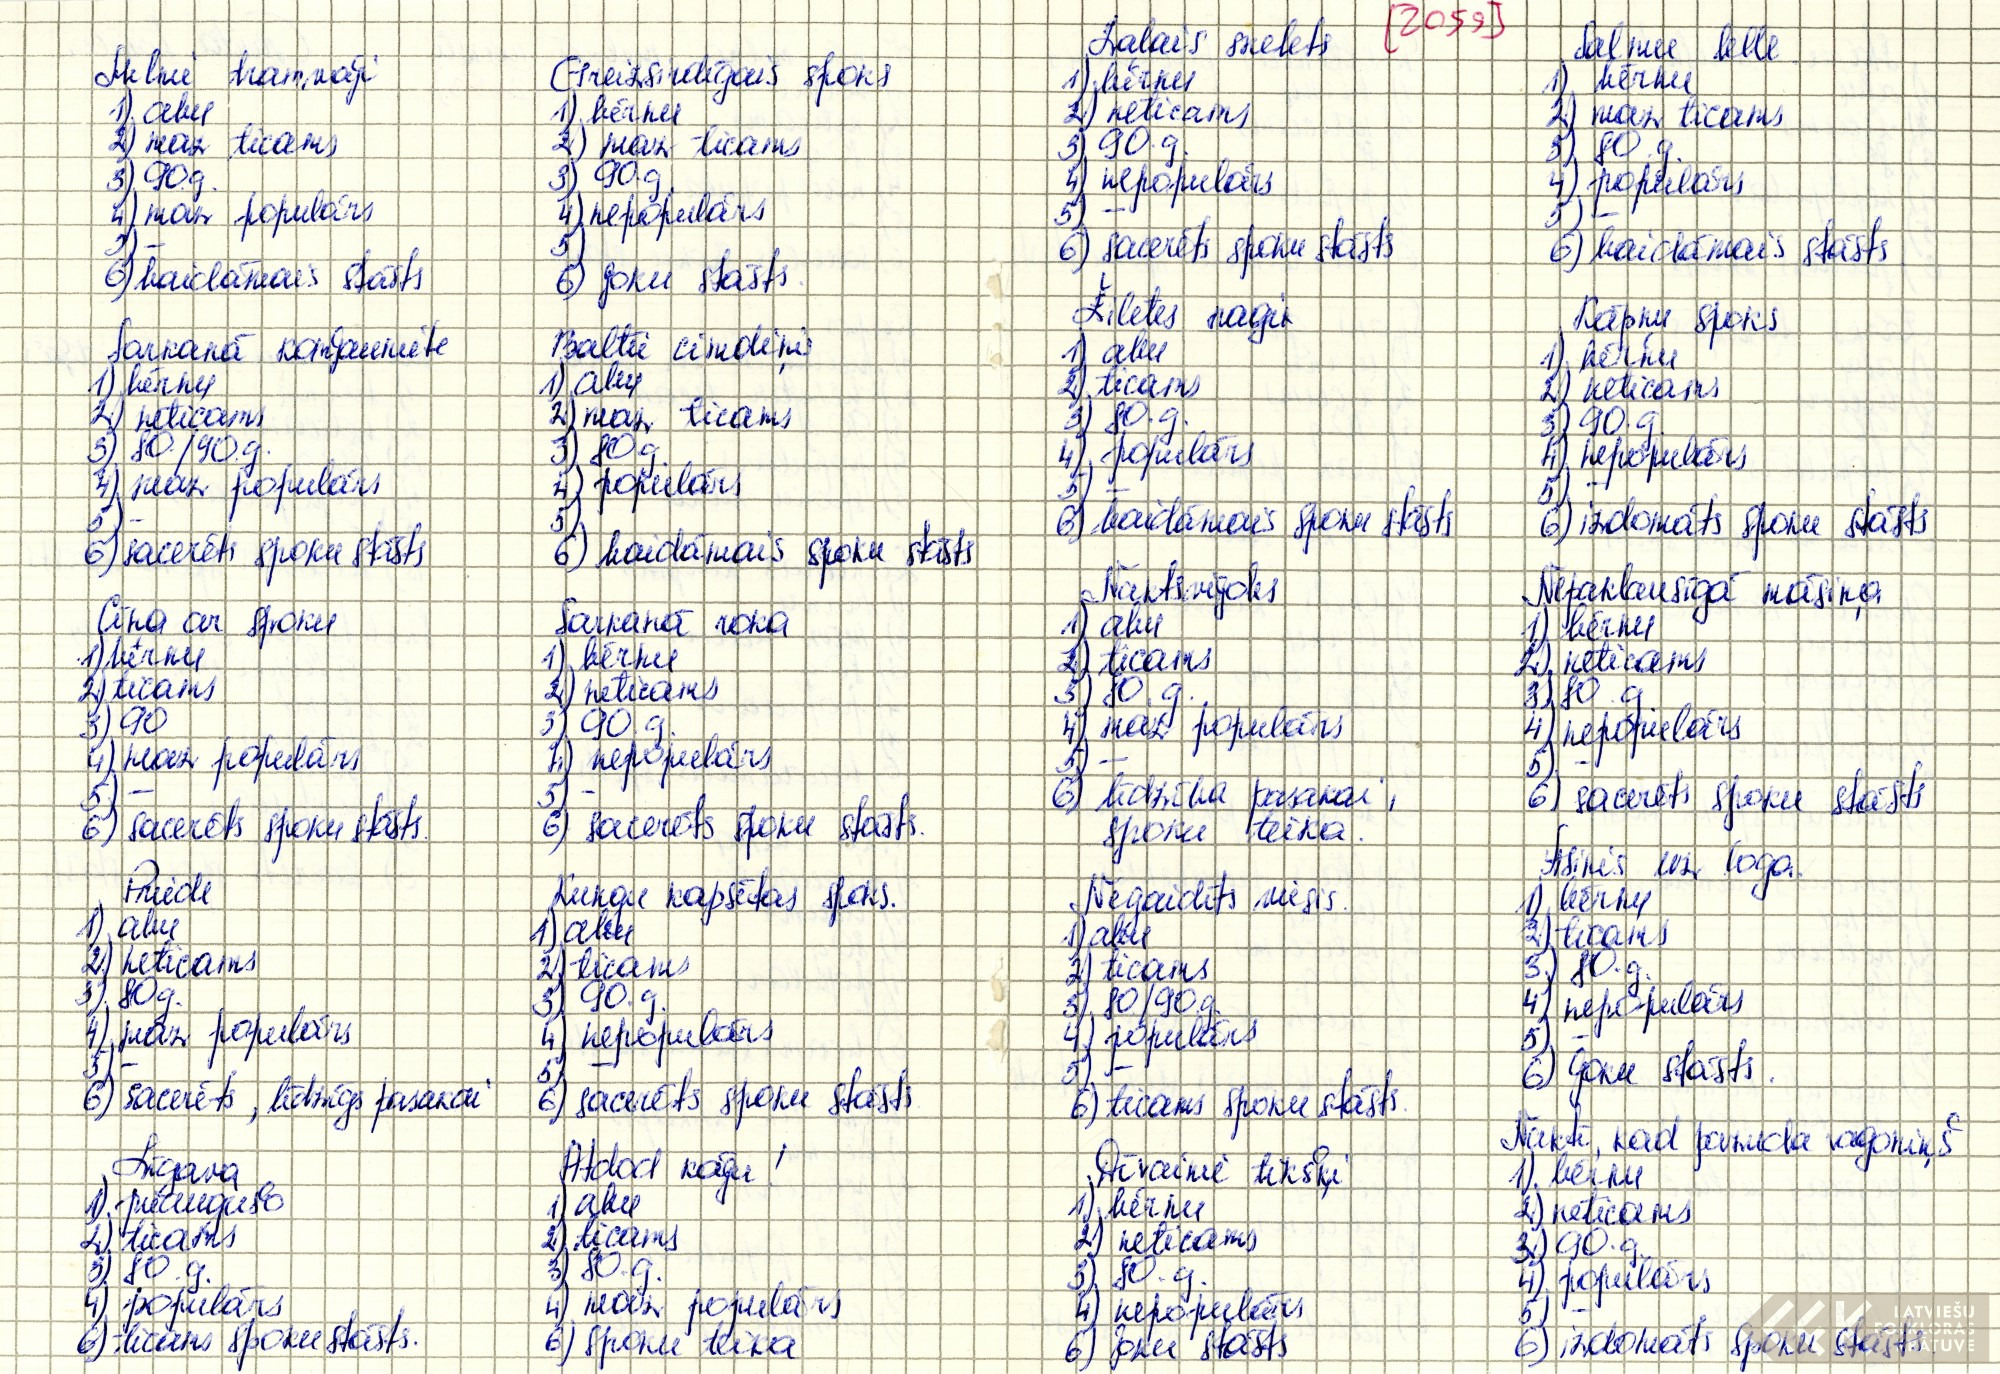 [2059]
Melnie tramvaji
1) abu
2) maz ticams
3) 90.g.
4) maz populārs
5) –
6) baidāmais stāsts
Sarkanā konfektīte
1) bērnu
2) neticams
3) 80./90.g.
4) maz populārs
5) –
6) sacerēts spoku stāsts
Cīņa ar spoku
1) bērnu
2) ticams
3) 90
4) maz populārs
5) –
6) sacerēts spoku stāsts.
Priede
1) abu
2) neticams
3) 80g.
4) maz populārs
5) –
6) sacerēts, līdzīgs pasakai
Līgava
1) pieaugušo
2) ticams
3) 80.g.
4) populārs
6) ticams spoku stāsts.
Greizsirdīgais spoks
1) bērnu
2) maz ticams
3) 90.g.
4) nepopulārs
5)
6) joku stāsts.
Baltie cimdiņi
1) abu
2) maz ticams
3) 80g.
4) populārs
5)
6) baidāmais spoku stāsts
Sarkanā roka
1) bērnu
2) neticams
3) 90.g.
4) nepopulārs
5) –
6) sacerēts spoku stāsts.
Kungu kapsētas spoks.
1) abu
2) ticams
3) 90.g.
4) nepopulārs
5) –
6) sacerēts spoku stāsts
Atdod kāju!
1) abu
2) ticams
3) 80.g.
4) maz populārs
6) spoku teika
Zaļais skelets
1) bērnu
2) neticams
3) 90.g.
4) nepopulārs
5) –
6) sacerēts spoku stāsts
Žiletes nagi
1) abu
2) ticams
3) 80.g.
4) populārs
5) –
6) baidāmais spoku stāsts
Nakts
1) abu
2) ticams
3) 80.g.
4) maz populārs
5) –
6) līdzība pasakai,
spoku teika.
Negaidīts viesis.
1) abu
2) ticams
3) 80/90g.
4) populārs
5) –
6) ticams spoku stāsts.
Dīvainie tikšķi
1) bērnu
2) neticams
3) 80.g.
4) nepopulārs
6) joku stāsts
Salmu lelle
1) bērnu
2) maz ticams
3) 80.g.
4) populārs
5) –
6) baidāmais stāsts
Kāpņu spoks
1) bērnu
2) neticams
3) 90.g.
4) nepopulārs
5) –
6) izdomāts spoku stāsts
Nepaklausīgā mašīna
1) bērnu
2) neticams
3) 80.g
4) nepopulārs
5) –
6) sacerēts spoku stāsts
Asinis uz loga.
1) bērnu
2) ticams
3) 80.g.
4) nepopulārs
5) –
6) joku stāsts.
Naktī, kad pazuda vagoniņš
1) bērnu
2) neticams
3) 90.g.
4) populārs
5) –
6) izdomāts spoku stāsts.
LATVIEŠU
FOLKLORAS
KRĀTUVE